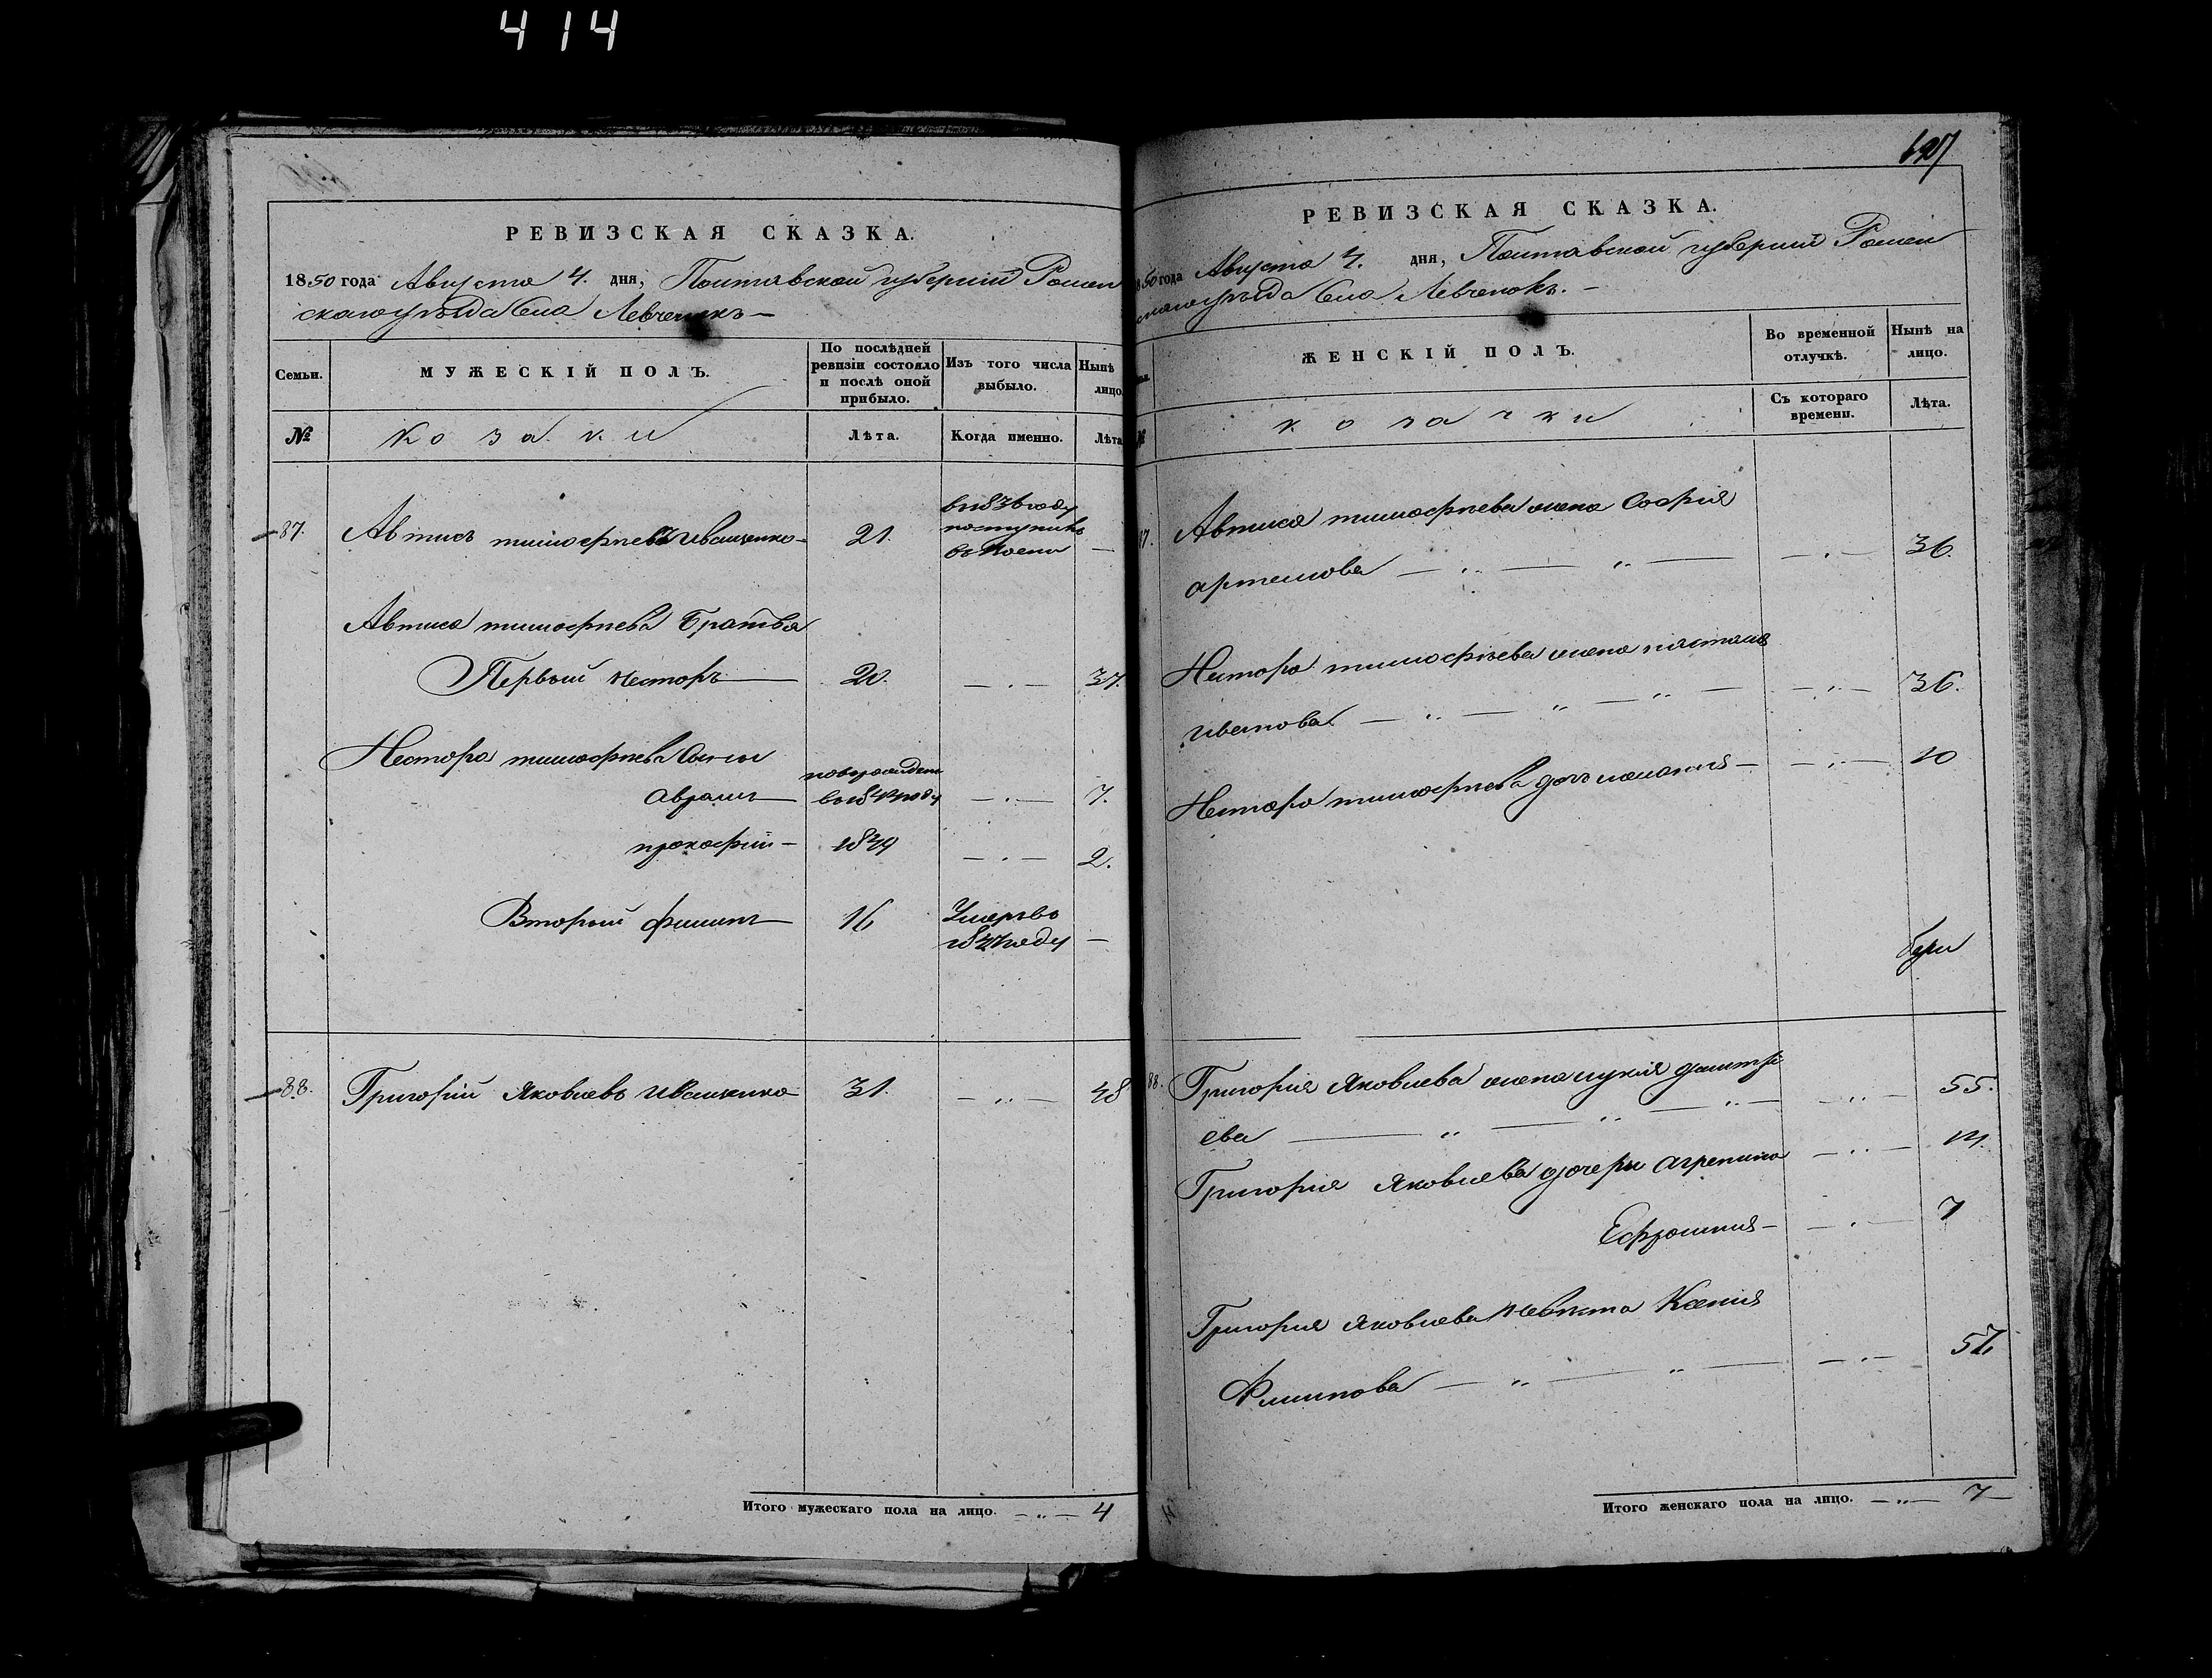 414
РЕВИЗСКАЯ СКАЗКА.
1850 года Августа 4. дня, Полтавской губерніи Ромен
скаго уѣзда села Левченокъ —
Семьи.
МУЖЕСКІЙ ПОЛЪ.
По послѣдней ревизіи состояло и послѣ оной прибыло.
Изъ того числа выбыло.
Нынѣ лицо.
№
козаки
Лѣта.
Когда именно.
Лѣта
87. Автисъ тимофѣевъ Иващенко — 21. —
в 1836 году
поступилъ
въ
Автиса тимофѣева Братья
Первый Несторъ — 20. — . — 37.
Нестора тимофѣева Сыны
новорожден
Аврамъ — 7.
прокофій — 1849 — . — 2.
Второй филипъ — 16 —
Умеръ въ
1847 году
88. Григорій Яковлевъ Иващенко 31. — „ — 48
Итого мужескаго пола на лицо. — „ — 4
627
РЕВИЗСКАЯ СКАЗКА.
1850 года Августа 4. дня, Полтавской губерніи Ромен
скаго уѣзда села Левченокъ. —
ЖЕНСКІЙ ПОЛЪ.
Во временной отлучкѣ.
Нынѣ на лицо.
№
козачки
Съ котораго времени.
Лѣта.
87. Автиса тимофѣева жена Софія
артемова — „ — „ — — . — 36.
Нестора тимофѣева жена
Иванова — „ — „ — „ — — „ — 36.
Нестора тимофѣева дочь — — „ — 10
88. Григорія Яковлева жена лукія дмитрі
ева — „ — „ — „ — — „ — 55.
Григорія Яковлева дочери агрепина — „ — 14.
Ефросинія — — . — 7
Григорія Яковлева Невѣста Ксенія
Филипова — „ — „ — — . — 57.
Итого женскаго пола на лицо. — „ — 7 —